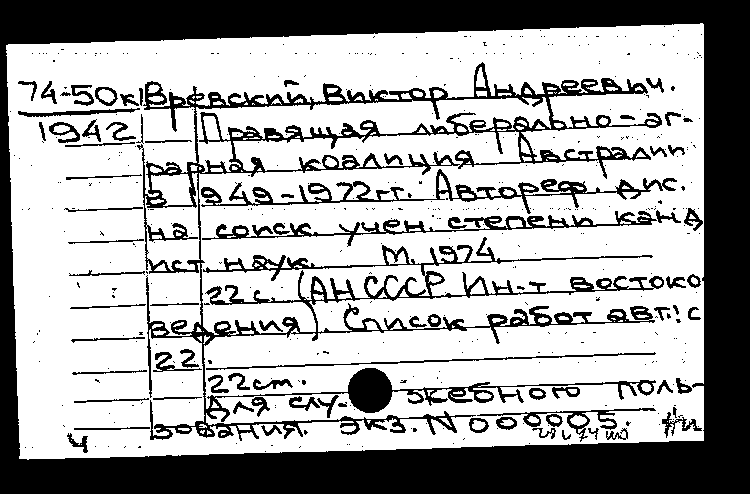 74-50к Вревский, Виктор Андреевич.
1942 Правящая либерально-аг-
рарная коалиция Австралии
в 1949-1972гг. Автореф. дис.
на соиск. учен. степени канд
ист. наук. М., 1974.
22 с. (АН СССР. Ин-т востоко
ведения). Список работ авт.: с
22.
22 см.
Для слу- жебного поль-
зования. Экз. N 000005.
4